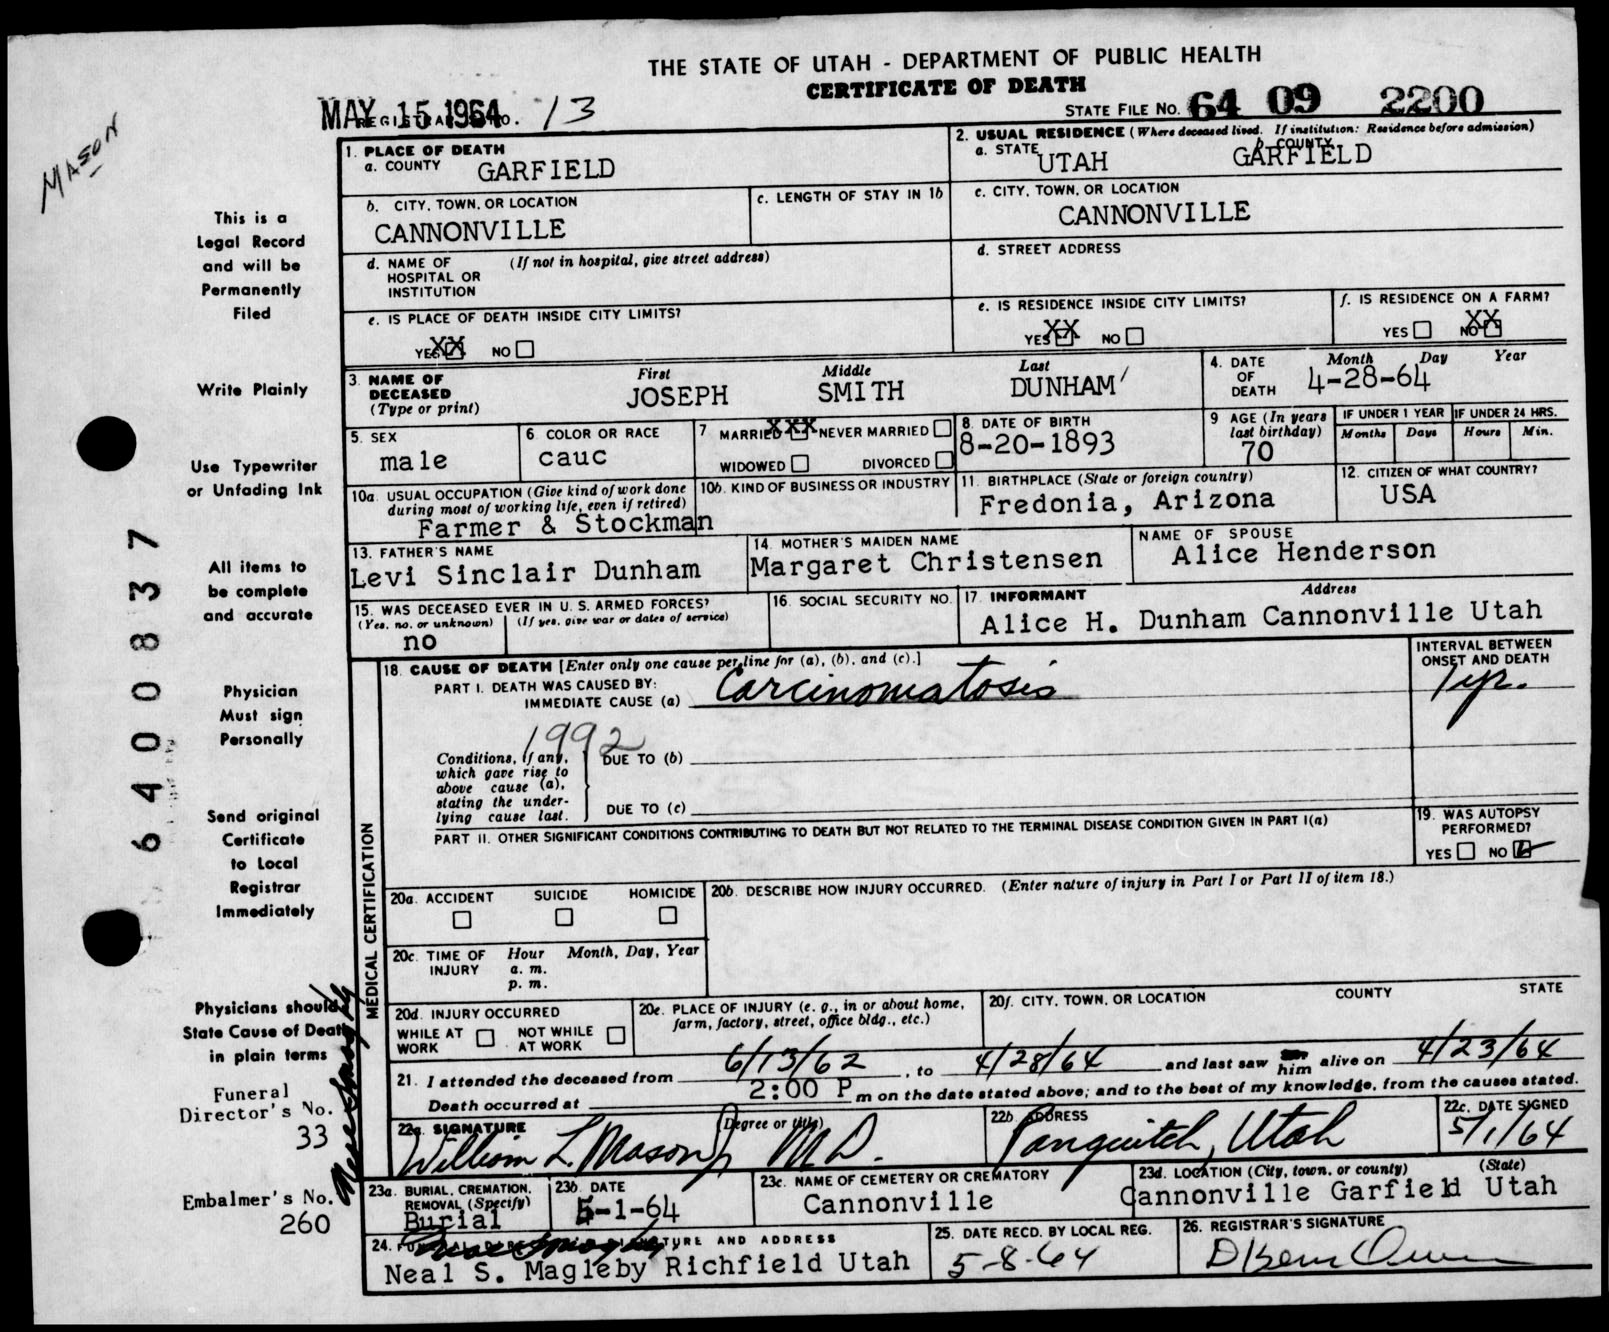 THE STATE OF UTAH - DEPARTMENT OF PUBLIC HEALTH
CERTIFICATE OF DEATH
MAY 15 1964 13
STATE FILE NO. 64 09 2200
MASON
This is a
Legal Record
and will be
Permanently
Filed
Write Plainly
Use Typewriter
or Unfading Ink
All items to
be complete
and accurate
Physician
Must sign
Personally
Send original
Certificate
to Local
Registrar
Immediately
Physicians should
State Cause of Death
in plain terms
Funeral
Director's No.
33
Embalmer's No.
260
6400837
1. PLACE OF DEATH
a. COUNTY GARFIELD
2. USUAL RESIDENCE (Where deceased lived. If institution: Residence before admission)
a. STATE UTAH b. COUNTY GARFIELD
b. CITY, TOWN, OR LOCATION
CANNONVILLE
c. LENGTH OF STAY IN 1b
c. CITY, TOWN, OR LOCATION
CANNONVILLE
d. NAME OF HOSPITAL OR INSTITUTION (If not in hospital, give street address)
d. STREET ADDRESS
e. IS PLACE OF DEATH INSIDE CITY LIMITS?
YES XX NO
e. IS RESIDENCE INSIDE CITY LIMITS?
YES XX NO
f. IS RESIDENCE ON A FARM?
YES NO XX
3. NAME OF DECEASED (Type or print)
First Middle Last
JOSEPH SMITH DUNHAM
4. DATE OF DEATH Month Day Year
4-28-64
5. SEX
male
6. COLOR OR RACE
cauc
7 MARRIED XXX NEVER MARRIED
WIDOWED DIVORCED
8. DATE OF BIRTH
8-20-1893
9 AGE (In years last birthday)
70
IF UNDER 1 YEAR IF UNDER 24 HRS.
Months Days Hours Min.
10a. USUAL OCCUPATION (Give kind of work done
during most of working life, even if retired)
Farmer & Stockman
10b. KIND OF BUSINESS OR INDUSTRY
11. BIRTHPLACE (State or foreign country)
Fredonia, Arizona
12. CITIZEN OF WHAT COUNTRY?
USA
13. FATHER'S NAME
Levi Sinclair Dunham
14. MOTHER'S MAIDEN NAME
Margaret Christensen
NAME OF SPOUSE
Alice Henderson
15. WAS DECEASED EVER IN U. S. ARMED FORCES?
(Yes, no, or unknown) (If yes, give war or dates of service)
no
16. SOCIAL SECURITY NO.
17. INFORMANT Address
Alice H. Dunham Cannonville Utah
MEDICAL CERTIFICATION
18. CAUSE OF DEATH [Enter only one cause per line for (a), (b), and (c).]
INTERVAL BETWEEN
ONSET AND DEATH
PART I. DEATH WAS CAUSED BY:
IMMEDIATE CAUSE (a) Carcinomatosis 1 yr.
1992
Conditions, if any,
which gave rise to
above cause (a),
stating the under-
lying cause last.
DUE TO (b)
DUE TO (c)
PART II. OTHER SIGNIFICANT CONDITIONS CONTRIBUTING TO DEATH BUT NOT RELATED TO THE TERMINAL DISEASE CONDITION GIVEN IN PART I(a)
19. WAS AUTOPSY
PERFORMED?
YES NO
20a. ACCIDENT SUICIDE HOMICIDE
20b. DESCRIBE HOW INJURY OCCURRED. (Enter nature of injury in Part I or Part II of item 18.)
20c. TIME OF INJURY Hour Month, Day, Year
a. m.
p. m.
20d. INJURY OCCURRED
WHILE AT WORK NOT WHILE AT WORK
20e. PLACE OF INJURY (e. g., in or about home,
farm, factory, street, office bldg., etc.)
20f. CITY, TOWN, OR LOCATION COUNTY STATE
21. I attended the deceased from 6/13/62, to 4/28/64 and last saw him alive on 4/23/64
Death occurred at 2:00 P m on the date stated above; and to the best of my knowledge, from the causes stated.
22a. SIGNATURE (Degree or title)
William L. Mason Jr M D.
22b. ADDRESS
Panguitch, Utah
22c. DATE SIGNED
5/1/64
23a. BURIAL, CREMATION,
REMOVAL (Specify)
Burial
23b. DATE
5-1-64
23c. NAME OF CEMETERY OR CREMATORY
Cannonville
23d. LOCATION (City, town, or county) (State)
Cannonville Garfield Utah
24. FUNERAL DIRECTOR'S SIGNATURE AND ADDRESS
Neal S. Magleby Richfield Utah
25. DATE RECD. BY LOCAL REG.
5-8-64
26. REGISTRAR'S SIGNATURE